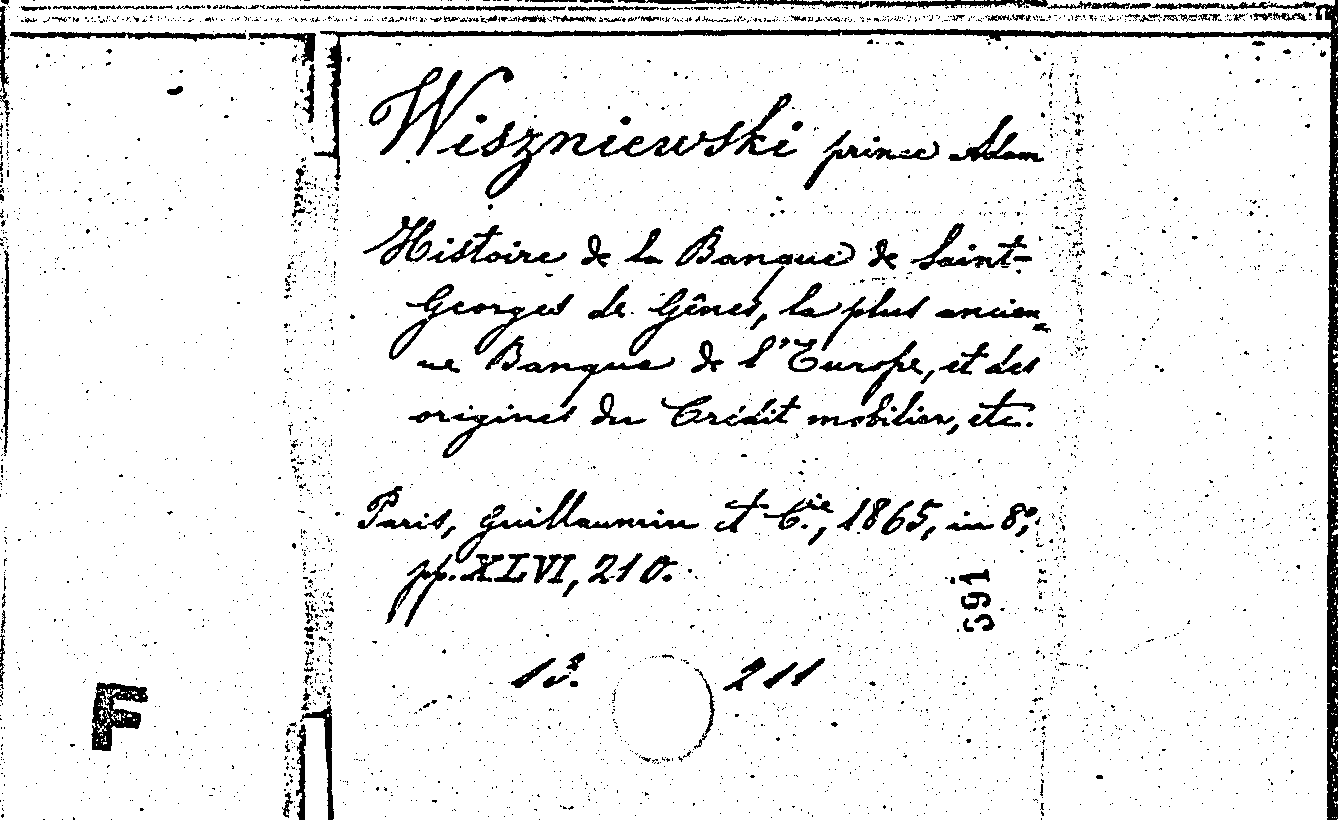 Wiszniewski prince Adam
Histoire de la Banque de Saint-
Georges de Gênes, la plus ancien=
ne Banque de l'Europe, et des
origines du Crédit mobilier, etc.
Paris, Guillaumin et C.ie, 1865, in 8º,
pp. XLVI, 210.
691
13. 211
F